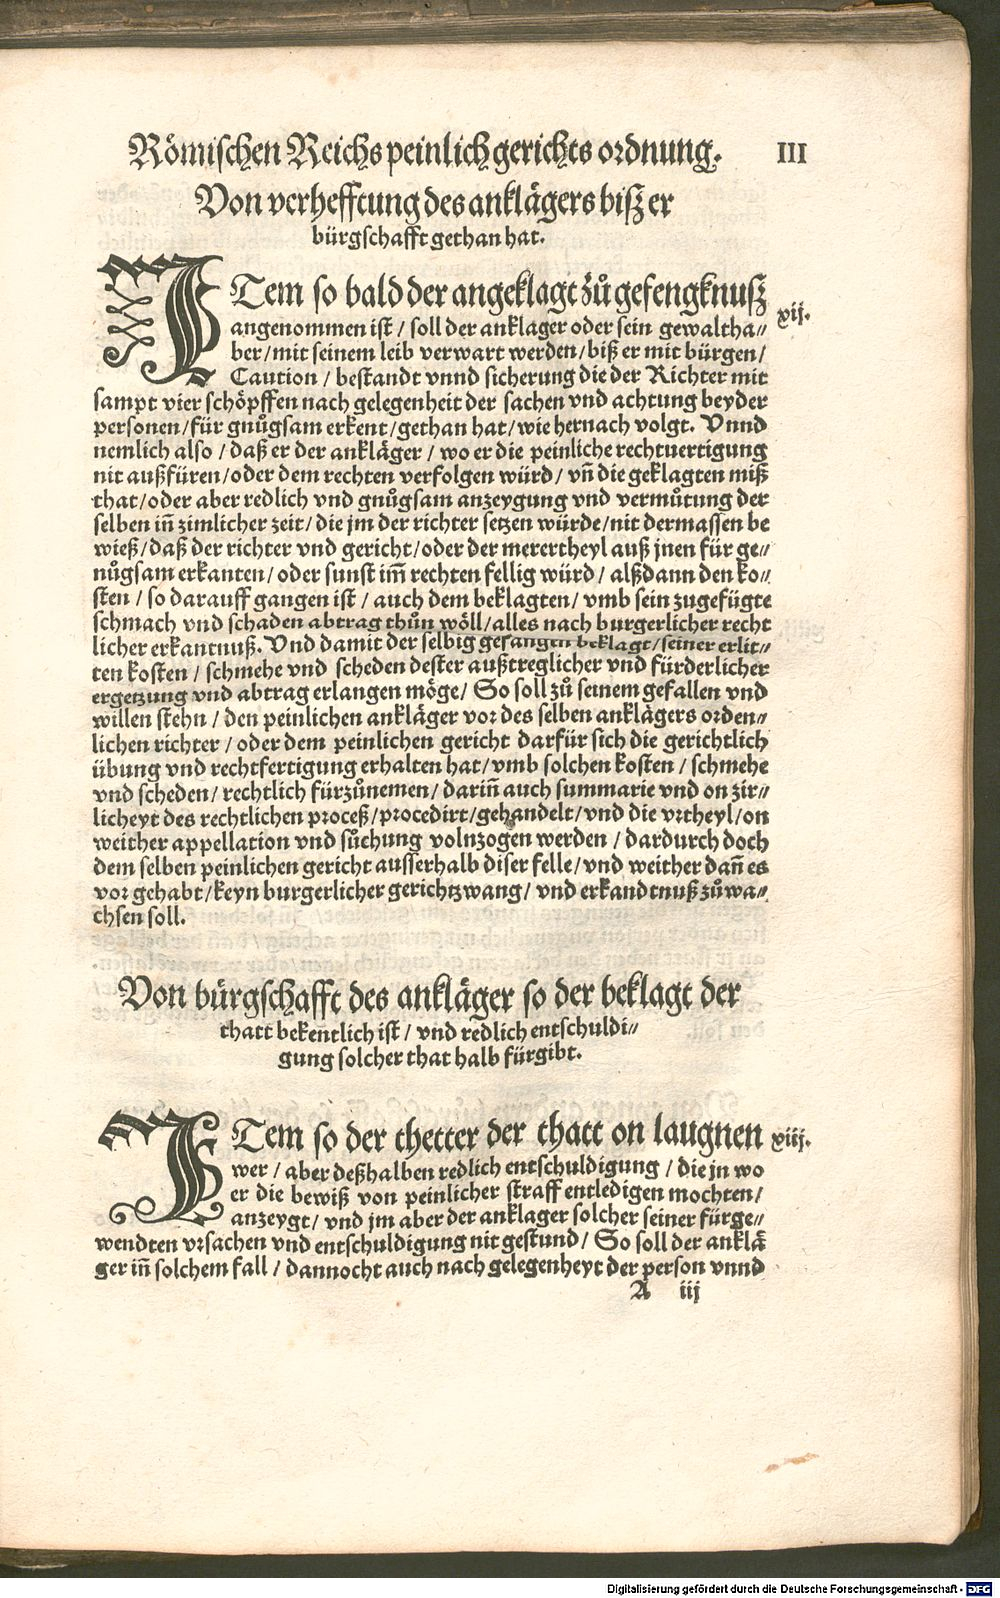 Römischen Reichs peinlich gerichts ordnung. III
Von verhefftung des anklägers biß er
bürgschafft gethan hat.
ITem so bald der angeklagt zů gefengknuß xij.
angenommen ist / soll der anklager oder sein gewaltha//
ber / mit seinem leib verwart werden / biß er mit bürgen /
Caution / bestandt vnnd sicherung die der Richter mit
sampt vier schöpffen nach gelegenheit der sachen vnd achtung beyder
personen / für gnůgsam erkent / gethan hat / wie hernach volgt. Vnnd
nemlich also / daß er der ankläger / wo er die peinliche rechtuertigung
nit außfüren / oder dem rechten verfolgen würd / vñ die geklagten miß
that / oder aber redlich vnd gnůgsam anzeygung vnd vermůtung der
selben iñ zimlicher zeit / die jm der richter setzen würde / nit dermassen be
wieß / daß der richter vnd gericht / oder der merertheyl auß jnen für ge//
nůgsam erkanten / oder sunst im̃ rechten fellig würd / alßdann den ko//
sten / so darauff gangen ist / auch dem beklagten / vmb sein zugefügte
schmach vnd schaden abtrag thůn wöll / alles nach burgerlicher recht
licher erkantnuß. Vnd damit der selbig gefangen beklagt / seiner erlit//
ten kosten / schmehe vnd scheden dester außtreglicher vnd fürderlicher
ergetzung vnd abtrag erlangen möge / So soll zů seinem gefallen vnd
willen stehn / den peinlichen ankläger vor des selben anklägers orden//
lichen richter / oder dem peinlichen gericht darfür sich die gerichtlich
übung vnd rechtfertigung erhalten hat / vmb solchen kosten / schmehe
vnd scheden / rechtlich fürzůnemen / dariñ auch summarie vnd on zir//
licheyt des rechtlichen proceß / procedirt / gehandelt / vnd die vrtheyl / on
weither appellation vnd sůchung volnzogen werden / dardurch doch
dem selben peinlichen gericht ausserhalb diser felle / vnd weither dañ es
vor gehabt / keyn burgerlicher gerichtzwang / vnd erkandtnuß zůwa//
chsen soll.
Von bürgschafft des ankläger so der beklagt der
thatt bekentlich ist / vnd redlich entschuldi//
gung solcher that halb fürgibt.
ITem so der thetter der thatt on laugnen xiij.
wer / aber deßhalben redlich entschuldigung / die jn wo
er die bewiß von peinlicher straff entledigen mochten /
anzeygt / vnd jm aber der anklager solcher seiner fürge//
wendten vrsachen vnd entschuldigung nit gestund / So soll der anklä
ger iñ solchem fall / dannocht auch nach gelegenheyt der person vnnd
A iij
Digitalisierung gefördert durch die Deutsche Forschungsgemeinschaft - DFG